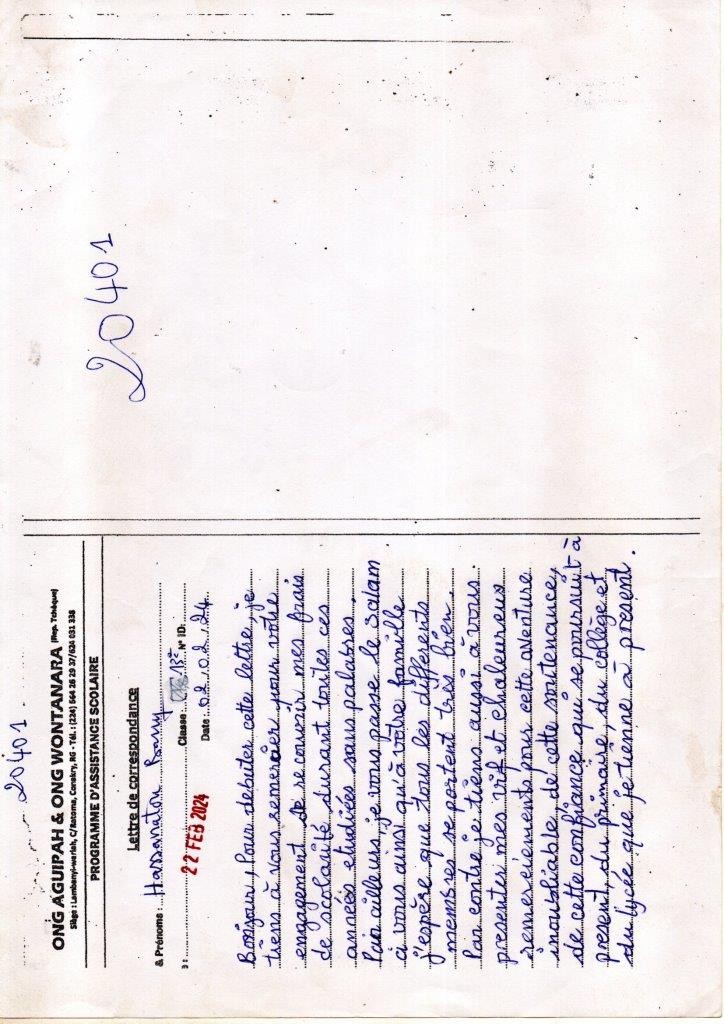 20401
ONG AGUIPAH & ONG WONTANARA (Rep. Tchèque)
Siège : Lambanyi-warieh, C/Ratoma, Conakry, RG - Tél. : (224) 664 26 29 37/624 031 338
PROGRAMME D'ASSISTANCE SCOLAIRE
Lettre de correspondance
& Prénoms : Hassanatou Barry
: Classe : 12e N° ID:
22 FEB 2024
Date : 02.02.24
Bonjour, Pour debuter cette lettre, je
tiens à vous remercier pour votre
engagement de recouvrir mes frais
de scolarité durant toutes ces
années etudiées sans palabres.
Par ailleurs, je vous passe le salam
ci vous ainsi qu'à votre famille
j'espère que tous les différents
membres se portent très bien.
Par contre je tiens aussi à vous
presenter mes vifs et chaleureux
remerciements pour cette aventure
inoubliable, de cette soutenance,
de cette confiance qui se poursuit à
present, du primaire, du collège et
du lycée que je tienne à present.
20401